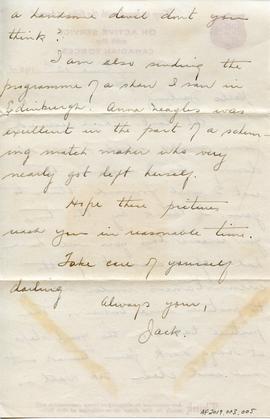 a handsome devil don't you
think?
I am also sending the
programme of a show I saw in
Edinburgh. Anna Neagles was
excellent in the part of a schem-
ing match maker who very
nearly got left herself.
Hope these pictures
reach you in reasonable time.
Take care of yourself
darling
Always your,
Jack.
AF2019.003.005